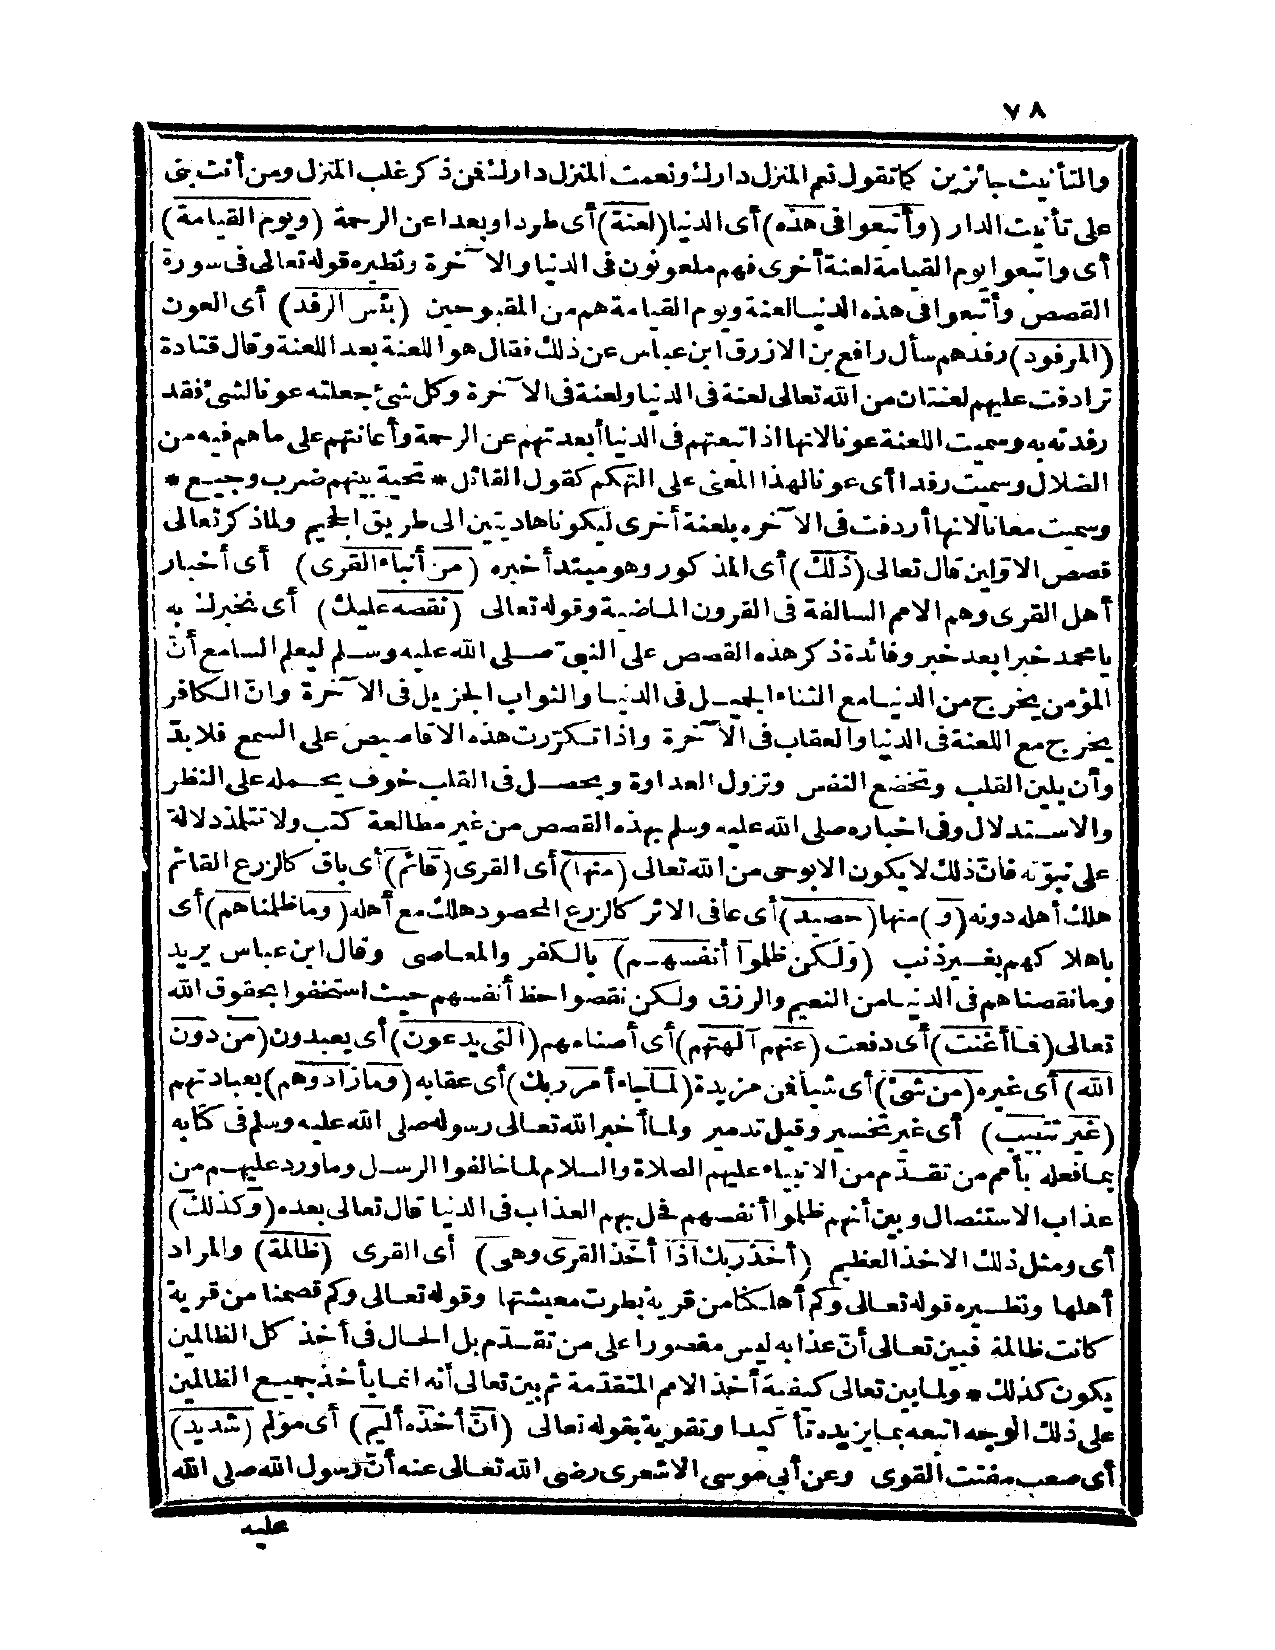 ٧٨
والتأنيث جائزين كما تقول نعم المنزل دارك ونعمت المنزل دارك فمن ذكر غلب المنزل ومن أنث بنى
على تأنيث الدار (وأتبعوا فى هذه) أى الدنيا (لعنة) أى طردا وبعدا عن الرحمة (ويوم القيامة)
أى واتبعوا يوم القيامة لعنة أخرى فهم ملعونون فى الدنيا والآخرة ونظيره قوله تعالى فى سورة
القصص وأتبعوا فى هذه الدنيا لعنة ويوم القيامة هم من المقبوحين (بئس الرفد) أى العون
(المرفود) رفدهم سأل رافع بن الازرق ابن عباس عن ذلك فقال هو اللعنة بعد اللعنة وقال قتادة
ترادفت عليهم لعنتان من الله تعالى لعنة فى الدنيا ولعنة فى الآخرة وكل شئ جعلته عونا لشئ فقد
رفدته به وسميت اللعنة عونا لانها اذا تبعتهم فى الدنيا أبعدتهم عن الرحمة وأعانتهم على ما هم فيه من
الضلال وسميت رفدا أى عونا لهذا المعنى على التهكم كقول القائل * تحية بينهم ضرب وجيع *
وسميت معانا لانها أردفت فى الآخره بلعنة أخرى ليكونا هاديتين الى طريق الجحيم ولما ذكر تعالى
قصص الاولين قال تعالى (ذلك) أى المذكور وهو مبتدأ خبره (من أنباء القرى) أى أخبار
أهل القرى وهم الامم السالفة فى القرون الماضية وقوله تعالى (نقصه عليك) أى نخبرك به
يا محمد خبرا بعد خبر وفائدة ذكر هذه القصص على النبى صلى الله عليه وسلم ليعلم السامع أنّ
المؤمن يخرج من الدنيا مع الثناء الجميل فى الدنيا والثواب الجزيل فى الآخرة وانّ الكافر
يخرج مع اللعنة فى الدنيا والعقاب فى الآخرة واذا تكرّرت هذه الاقاصيص على السمع فلابدّ
وأن يلين القلب وتخضع النفس وتزول العداوة ويحصل فى القلب خوف يحمله على النظر
والاستدلال وفى اخباره صلى الله عليه وسلم بهذه القصص من غير مطالعة كتب ولا تتلمذ دلالة
على نبوّته فانّ ذلك لا يكون الا بوحى من الله تعالى (منها) أى القرى (قائم) أى باق كالزرع القائم
هلك أهله دونه (و) منها (حصيد) أى عافى الاثر كالزرع المحصود هلك مع أهله (وما ظلمناهم) أى
باهلاكهم بغير ذنب (ولكن ظلموا أنفسهم) بالكفر والمعاصى وقال ابن عباس يريد
وما نقصناهم فى الدنيا من النعيم والرزق ولكن نقصوا حظ أنفسهم حيث استخفوا بحقوق الله
تعالى (فما أغنت) أى دفعت (عنهم آلهتهم) أى أصنامهم (التى يدعون) أى يعبدون (من دون
الله) أى غيره (من شئ) أى شيأ فمن مزيدة (لما جاء أمر ربك) أى عقابه (وما زادوهم) بعبادتهم
(غير تتبيب) أى غير تخسير وقيل تدمير ولما أخبر الله تعالى رسوله صلى الله عليه وسلم فى كتابه
بما فعله بأمم من تقدّم من الانبياء عليهم الصلاة والسلام لما خالفوا الرسل وما ورد عليهم من
عذاب الاستئصال وبين أنهم ظلموا أنفسهم فحل بهم العذاب فى الدنيا قال تعالى بعده (وكذلك)
أى ومثل ذلك الاخذ العظيم (أخذ ربك اذا أخذ القرى وهى) أى القرى (ظالمة) والمراد
أهلها ونظيره قوله تعالى وكم أهلكنا من قرية بطرت معيشتها وقوله تعالى وكم قصمنا من قرية
كانت ظالمة فبين تعالى أنّ عذابه ليس مقصورا على من تقدّم بل الحال فى أخذ كل الظالمين
يكون كذلك * ولما بين تعالى كيفية أخذ الامم المتقدمة ثم بين تعالى أنه انما يأخذ جميع الظالمين
على ذلك الوجه اتبعه بما يزيده تأكيدا وتقوية بقوله تعالى (انّ أخذه أليم) أى مؤلم (شديد)
أى صعب مفتت القوى وعن أبى موسى الاشعرى رضى الله تعالى عنه أنّ رسول الله صلى الله
عليه